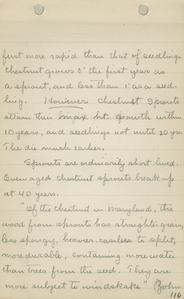 first more rapid than that of seedlings
chestnut grows 3' the first year as
a sprout, and less than 1' as a seed-
ling. However chestnut sprouts
attain their max. ht. growth within
10 years, and seedlings not until 20 yrs.
The die much earlier.
Sprouts are ordinarily short lived.
Even aged chestnut sprouts break up
at 40 years.
"Of the chestnut in Maryland, the
wood from sprouts has straighter grain,
less spongy, heavier, easiest to split,
more durable, containing more water
than trees from the seed. They are
more subject to windshake"
116